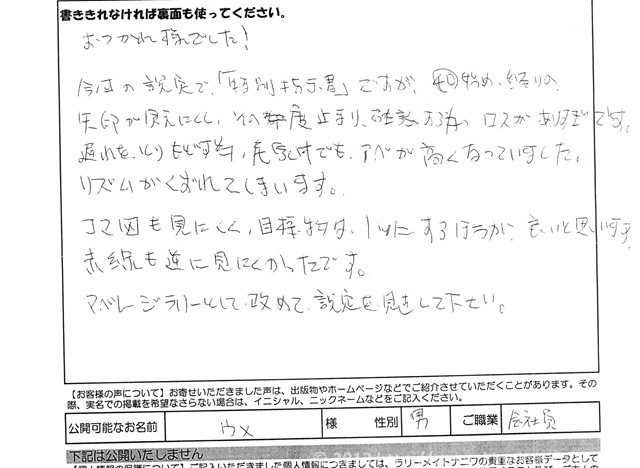 書ききれなければ裏面も使ってください。
おつかれ様でした!
今回の設定で、「特別指示書」ですが、㊵始め、終りの、
矢印が見えにくく、その都度止まり、確認する為、ロスがありすぎです。
遅れを、とりもどす為、尾張付でも、アベが高くなっていました。
リズムがくずれてしまいます。
コマ図も見にくく、目標物は、1ツにするほうが、良いと思います
赤線も逆に見にくかったです。
アベレージラリーとして、改めて、設定を見直して下さい。
【お客様の声について】お寄せいただきました声は、出版物やホームページなどでご紹介させていただくことがあります。その
際、実名での掲載を希望なさらない場合は、イニシャル、ニックネームなどをご記入ください。
公開可能なお名前 ウメ 様 性別 男 ご職業 会社員
下記は公開いたしません
【個人情報の保護について】ご記入いただきました個人情報につきましては、ラリーメイトナニワの貴重なお客様データとして